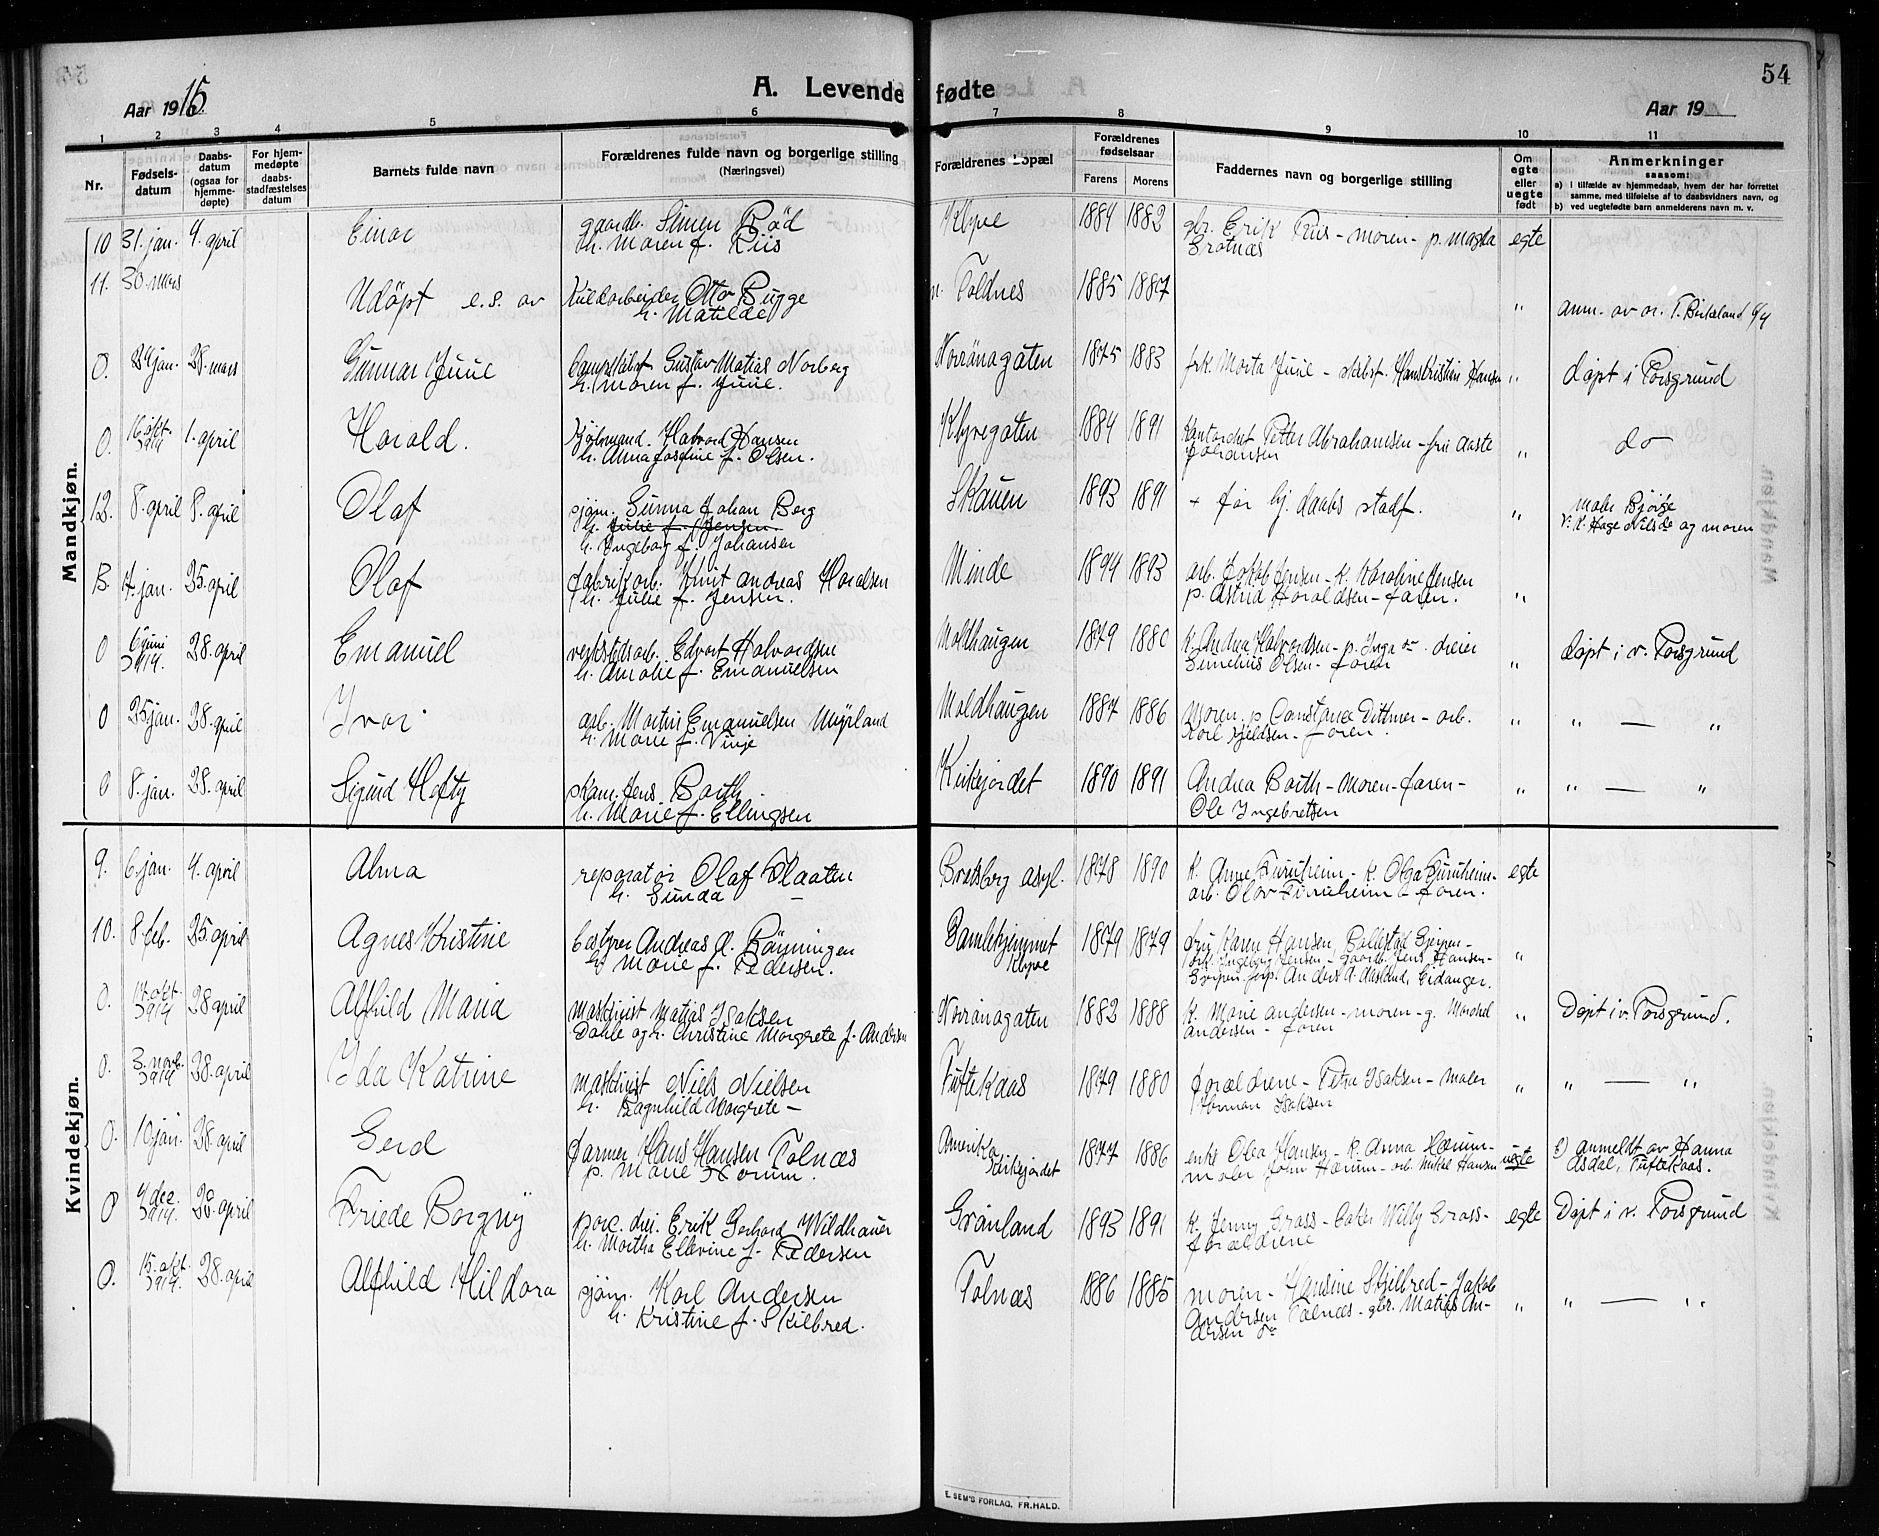 54
Aar 1915
A. Levende fødte
Aar 19
1 2 3 4 5 6 7 8 9 10 11
Nr.
Fødsels-datum
Daabs-datum (ogsaa for hjemme-døpte)
For hjem-medøpte daabs-stadfæstelses datum
Barnets fulde navn
Forældrenes fulde navn og borgerlige stilling
(Næringsvei)
Forældrenes bopæl
Forældrenes fødselsaar
Farens Morens
Faddernes navn og borgerlige stilling
Om egte eller uegte født
Anmerkninger
saasom:
a) i tilfælde av hjemmedaab, hvem der har forrettet
samme, med tilføielse af to daabsvidners navn, og
b) ved uegtefødte barn anmelderens navn m. v.
Mandkjøn.
10 31. jan. 4. april Einar gaardbr. Simen Röd Klyve 1884 1882 gbr. Erik Riis - moren - p. Magda egte
h. Moren f. Riis Grotnæs
11. 30. mars Udöpt e.s. av Kuldarbeider Otto Bugge n. Toldnes 1885 1887 " anm. av or. T. Birkeland 6/4
h. Matilde
0. 24 jan. 28. mars Gunnar Juul Gustav Matias Norberg Norrönagaten 1875 1883 frk. Marta Juul - skibsf. Hans Kristian Hansen " döpt i Porsgrund
h. moren f. Juul.
0. 16. okt. 1914 1. april Harald. Halvord Hansen Klyvegaten 1884 1891 Kantorist Petter Abrahamsen - fru Aaste " do
h. Anna Josefine f. Olsen. Johansen
12. 8. april 8. april Olaf sjöm. Gunna Johan Berg Skauen 1893 1891 + för hj. daabs stadf. " maler Bjöige
h. Julie f. Jensen og moren
h. Ingeborg f. Johansen
13. 7. jan. 25. april Olaf fabrikarb. Knut Andreas Haralsen Minde 1894 1893 arb. Jakob Jensen - k. Karoline Jensen "
h. Julie f. Jensen. p. Astrid Haraldsen - faren.
0 6 juni 1914. 28. april Emanuel verkstedsarb. Edvart Halvordsen Moldhaugen 1879 1880 k. Andrea Halvordsen - p. Inga do. dreier " döpt i v. Porsgrund
h. Amalie f. Emanuelsen Olsen - faren
0 25 jan. 28. april Ivar. arb. Martin Emanuelsen Myrland Moldhaugen 1887 1886 moren. p. Constance Dittmer - arb. " " — "
h. Marie f. Vinje Karl Kjeldsen - faren.
0 8. jan. 28. april Sigurd Hefty skom. Jens Barth Kirkejordet 1890 1891 Andrea Barth - moren - faren - " " — "
h. Marie f. Ellingsen Ole Ingebretsen
Kvindekjøn.
9. 6. jan. 4. april Alma reparatör Olaf Flaaten Bratsberg asyl. 1878 1890 k. Anne Furuheim - k. Olga Furuheim - egte
h. Gunda — arb. Olav Furuheim - faren.
10. 8. feb. 25. april Agnes Kristine bestyrer Andreas A. Rönningen Bamlehjemmet Klyve 1879 1879 fru Karen Hansen, Bollestad Gjerpen - "
h. Marie f. Pedersen. frk. Ingeborg Jensen - gaardb. Jens Hansen -
Gjerpen, Anders A. Aasland, Eidanger.
0. 17. okt. 1914 28 april Alfhild Maria maskinist Matias Isaksen Norrönagaten 1882 1888 k. Marie Andersen - moren - g. " Döpt i v. Porsgrund.
Dahle og h. Christine Margrete f. Andersen Andersen - faren
0. 3. novb. 1914 28. april Ida Katrine maskinist Niels Nielsen Tuftekaas 1879 1880 forældrene - Petra Isaksen - maler " " — "
h. Ragnhild Margrete — Herman Isaksen
0. 10 jan. 28. april Gerd farmer Hans Hansen Tolnæs Amerika Kirkejordet 1877 1886 enke Olea Hansen - k. Anna Hærum - uegte b) anmeldt av Hanna
p. Marie Hörum. maler John Hærum - arb. Mikal Hansen Asdal, Tuftekaas.
0 4 dec. 1914. 28. april Friede Borgny porc. drei. Erik Gerhard Wildhauer Grönland 1893 1891 k. Jenny Grass - Willy Grass - egte Döpt i v. Porsgrund
h. Martha Ellevine f. Pedersen forældrene
0. 15. okt. 1914. 28. april Alfhild Hildora sjöm. Karl Andersen Tolnæs 1886 1885 moren - Hansine Skilbred - Jakob " " — "
h. Kristine f. Skilbred. Andersen Tolnæs - gbr. Matias An-
dersen do
E. SEM'S FORLAG, FR.HALD.